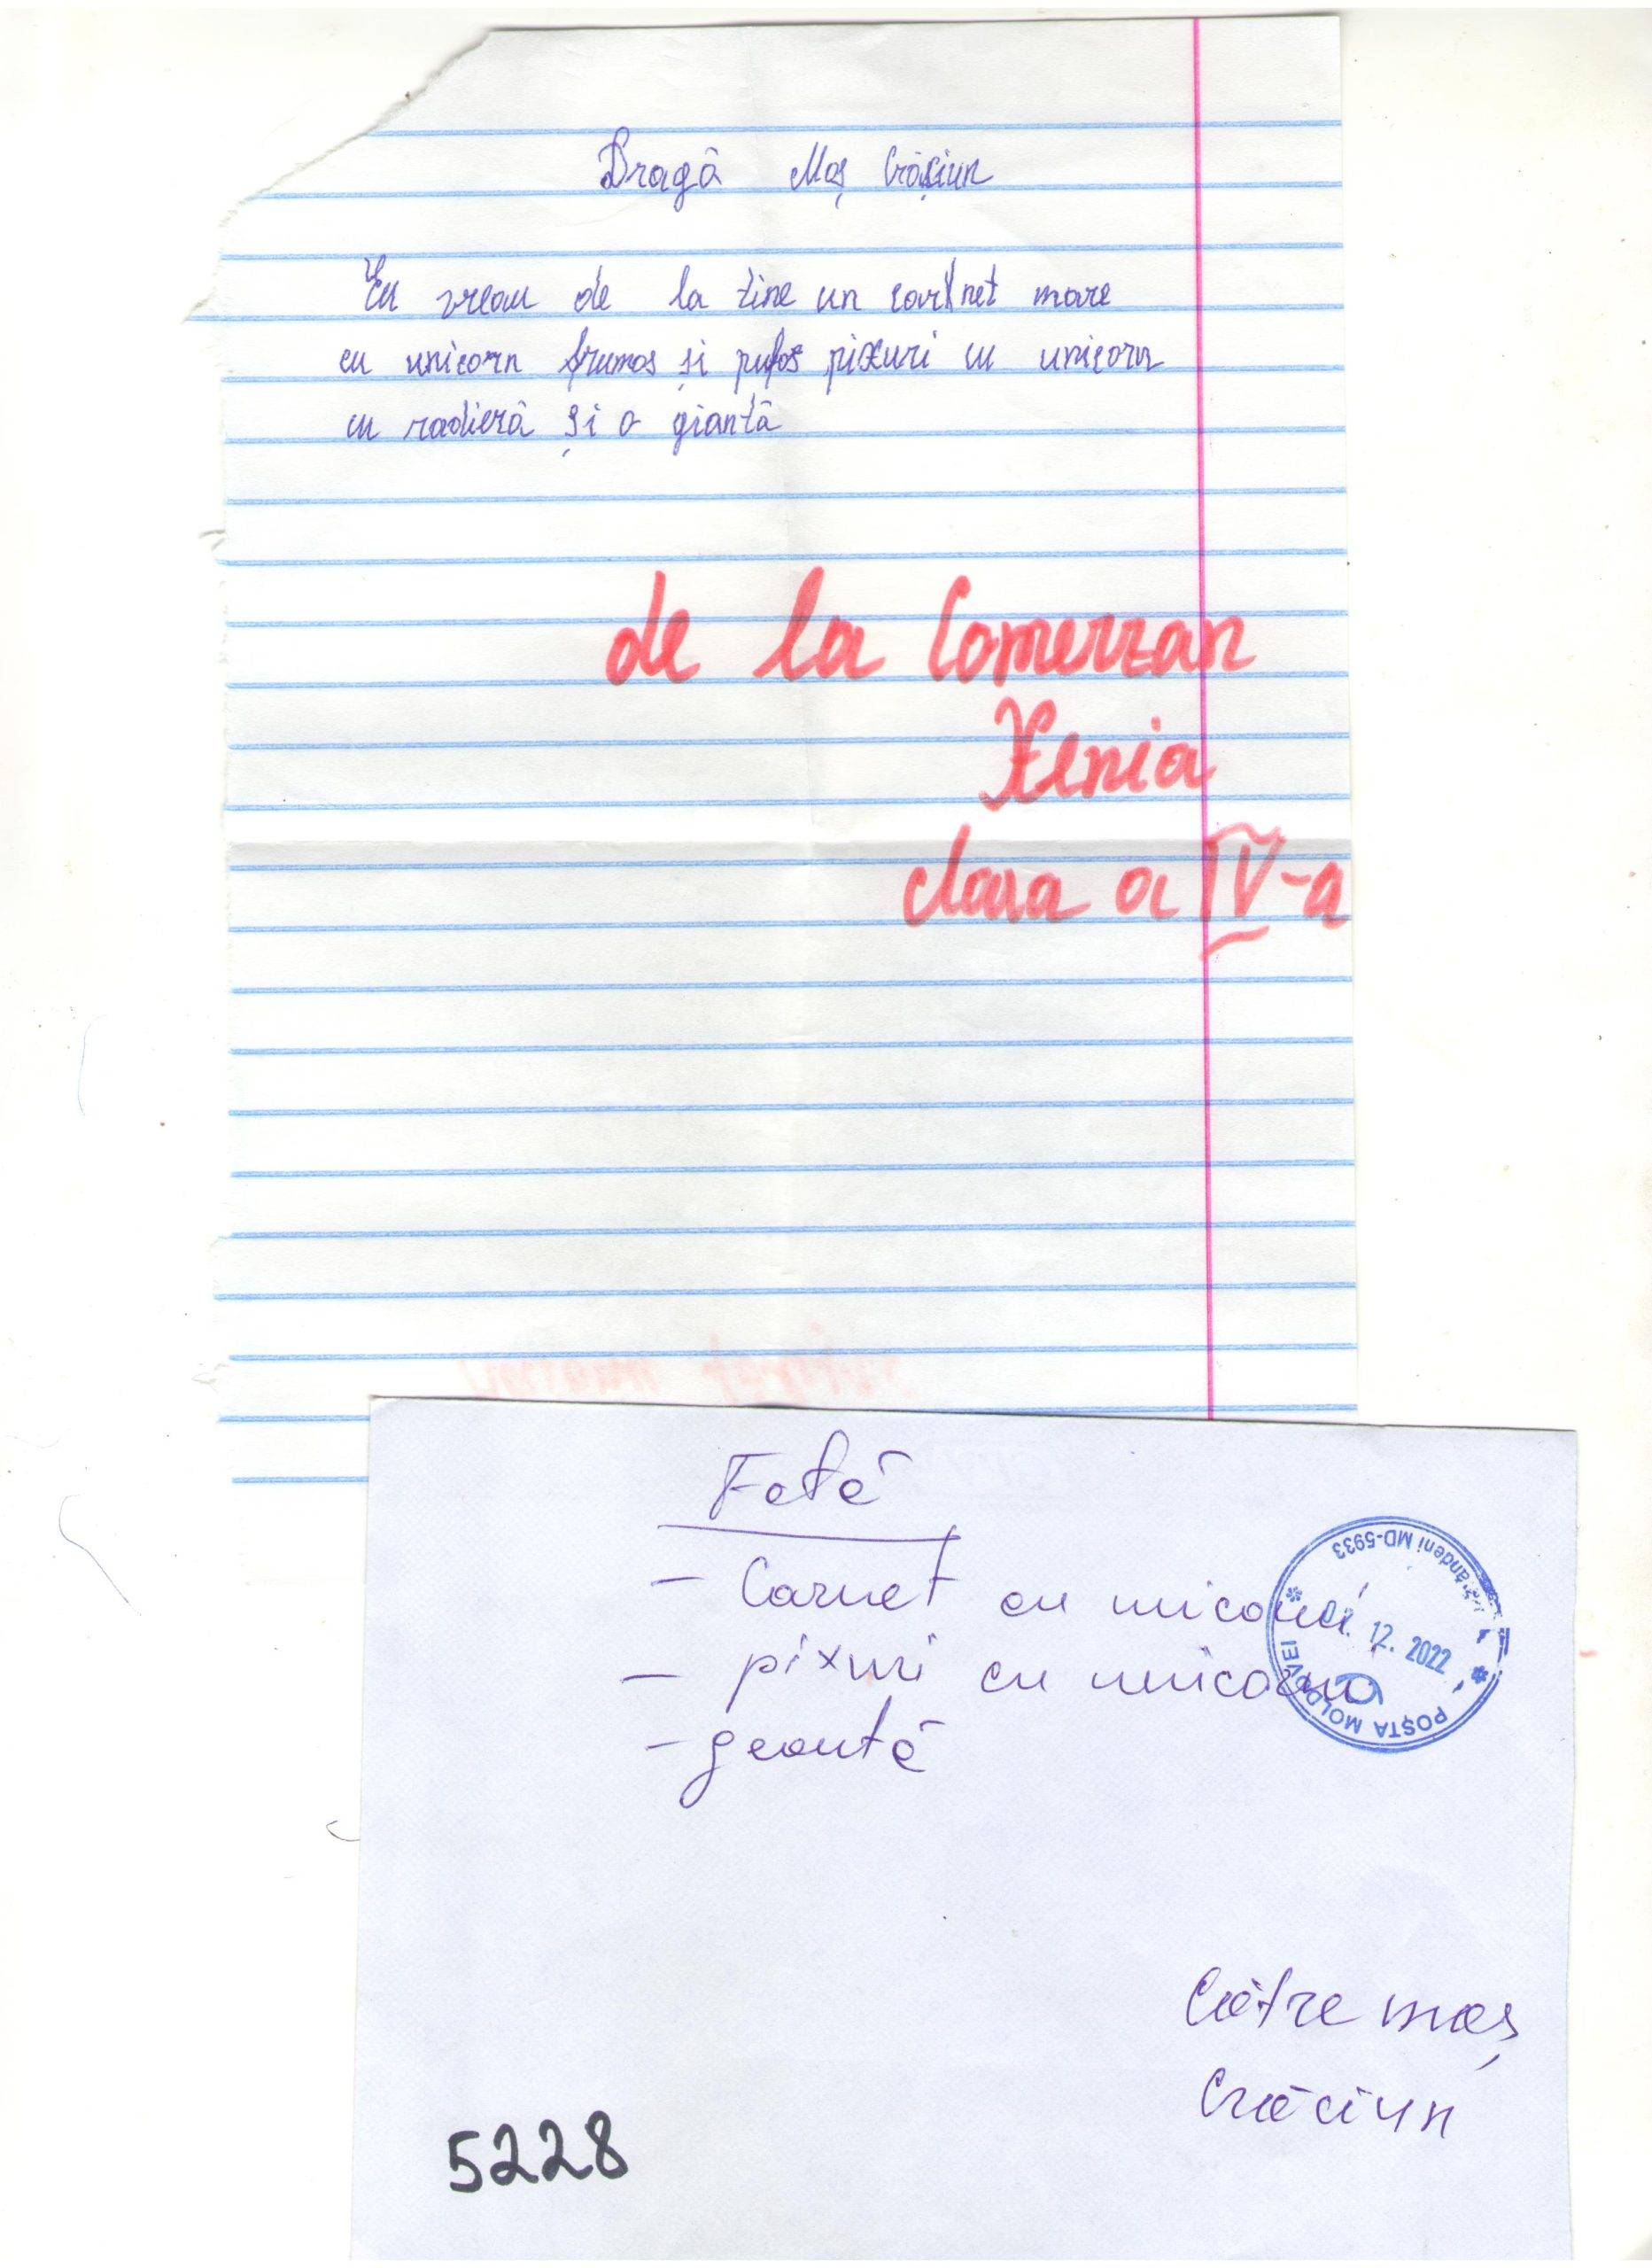 Dragă Moș Crășiun
Eu vreau de la tine un carnet mare
cu unicorn frumos și pufos pixuri cu unicorn
cu radieră și o giantă
de la Comerzan
Xenia
clasa a IV-a
Fată
- Carnet cu unicorni
- pixuri cu unicorn
- geantă
MD-5933
12. 2022
POȘTA MOLDOVEI
Către moș
Crăciun
5228